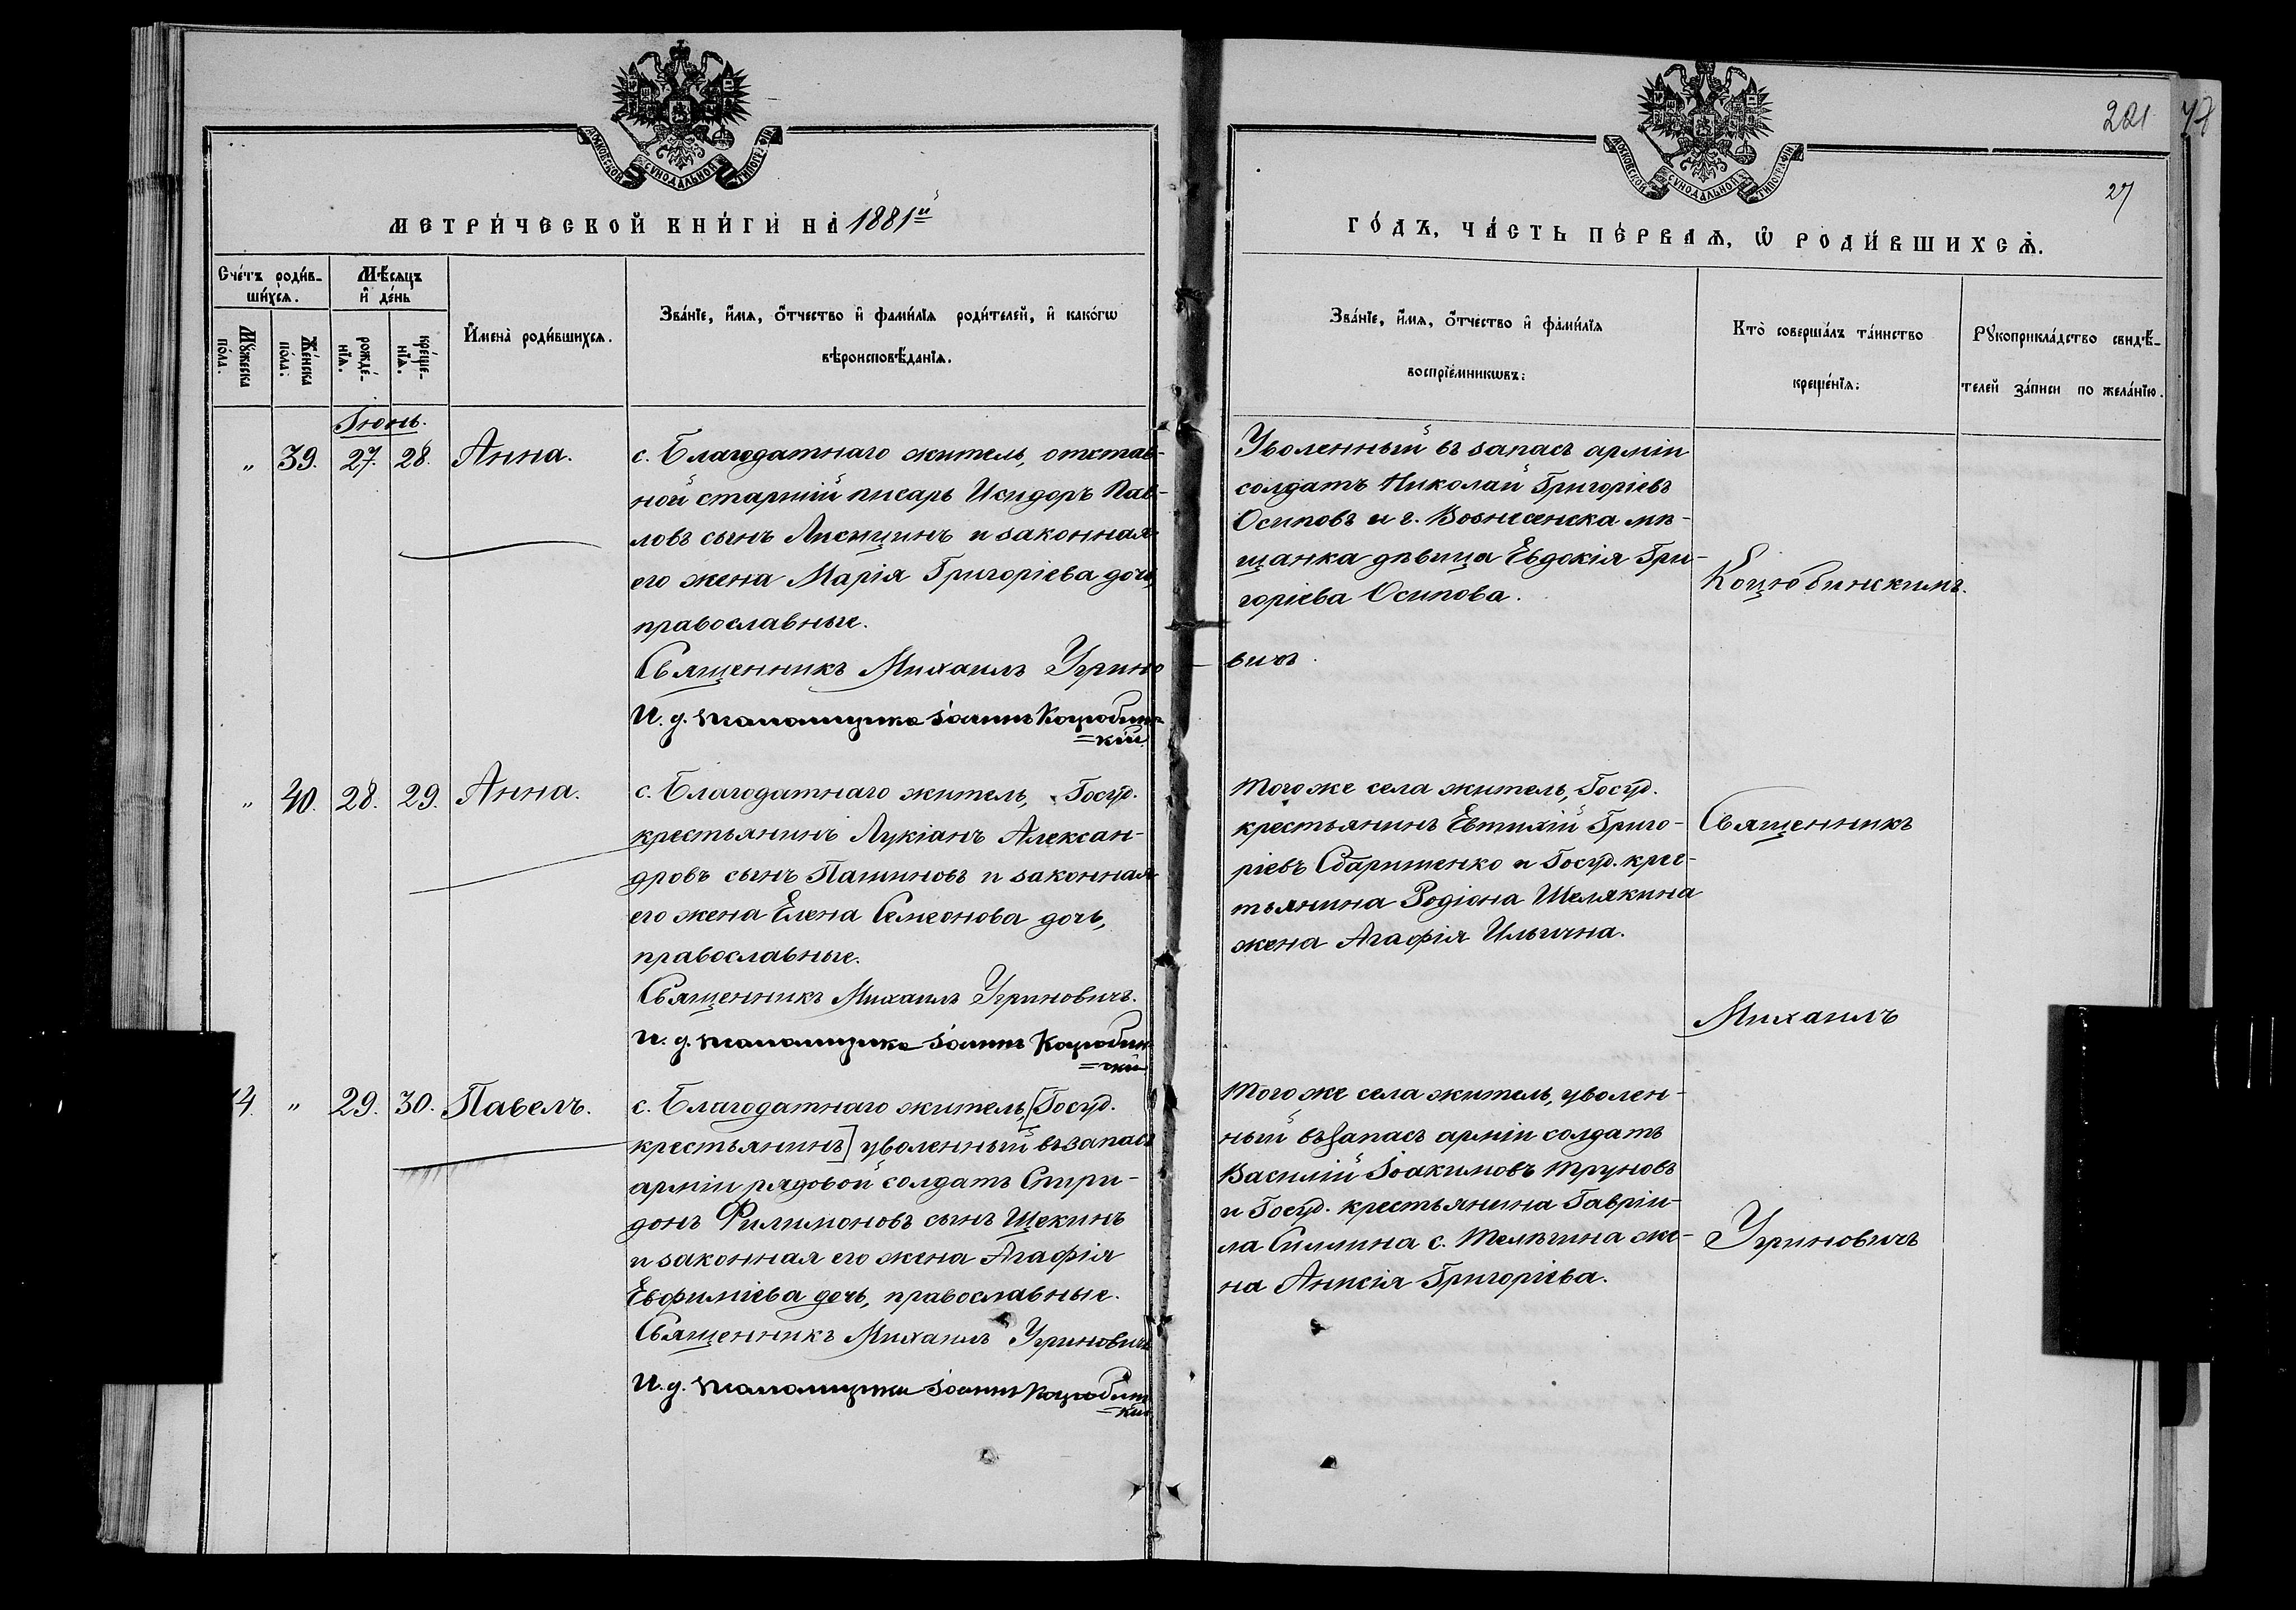 221 78
27
МОСКОВСКОЙ СѴНОДАЛЬНОЙ ТИПОГРАФІИ
МЕТРИ́ЧЕСКОЙ КНИ́ГИ НА 1881й
Сче́тъ роди́в-
ши́хся.
Мѣ́сяцъ
и҆ де́нь
Мꙋ́жеска
по́ла.
Же́нска
по́ла.
рожде́-
нїѧ.
креще́-
нїѧ.
И҆мена̀ роди́вшихся.
Зва́нїе, и҆́мѧ, ѻ҆́тчество и҆ фами́лїѧ роди́телей, и҆ како́гѡ
вѣроисповѣ́данїѧ.
Іюнь.
„ 39. 27. 28. Анна.
с. Благодатнаго житель, отстав-
ной старшій писарь Исидоръ Пав-
ловъ сынъ Лисицинъ и законная
его жена Марія Григоріева дочь,
православные.
Священникъ Михаилъ Угрино
И. д. псаломщика Іоаннъ Коцюбин-
=кій
„ 40. 28. 29. Анна.
с. Благодатнаго житель, Госуд.
крестьянинъ Лукіанъ Алексан-
дровъ сынъ Пашиновъ и законная
его жена Елена Семеонова дочь,
православные.
Священникъ Михаилъ Угриновичъ.
И. д. псаломщика Іоаннъ Коцюбин-
=скій
14. „ 29. 30. Павелъ.
с. Благодатнаго житель, [Госуд.
крестьянинъ] уволенный въ запасъ
арміи рядовой солдатъ Спири-
донъ Филимоновъ сынъ Щекинъ
и законная его жена Агафія
Евфиміева дочь, православные.
Священникъ Михаилъ Угриновичъ
И. д. псаломщика Іоаннъ Коцюбин
=кій
МОСКОВСКОЙ СѴНОДАЛЬНОЙ ТИПОГРАФІИ
ГО́ДЪ, ЧА́СТЬ ПЕ́РВАѦ, Ѡ҆ РОДИ́ВШИХСѦ.
Зва́нїе, и҆́мѧ, ѻ҆́тчество и҆ фами́лїѧ
воспрїе́мникѡвъ:
Кто̀ соверша́лъ та́инство
креще́нїѧ:
Рꙋкоприкла́дство свидѣ́-
телей за́писи по жела́нїю.
Уволенный въ запасъ арміи
солдатъ Николай Григоріевъ
Осиповъ и г. Вознесенска мѣ-
щанка дѣвица Евдокія Гри-
горіева Осипова.
вичъ.
Коцюбинскимъ.
Того же села житель, Госуд.
крестьянинъ Евтихій Григо-
ріевъ Сбаришенко и Госуд. крес-
тьянина Родіона Шелякина
жена Агафія Ильична.
Священникъ
Михаилъ
Угриновичъ
Того же села житель, уволен-
ный въ запасъ арміи солдатъ
Василій Іоакимовъ Труновъ
и Госуд. крестьянина Гавріи-
ла Силмина с. Телѣгина же-
на Анисія Григоріева.